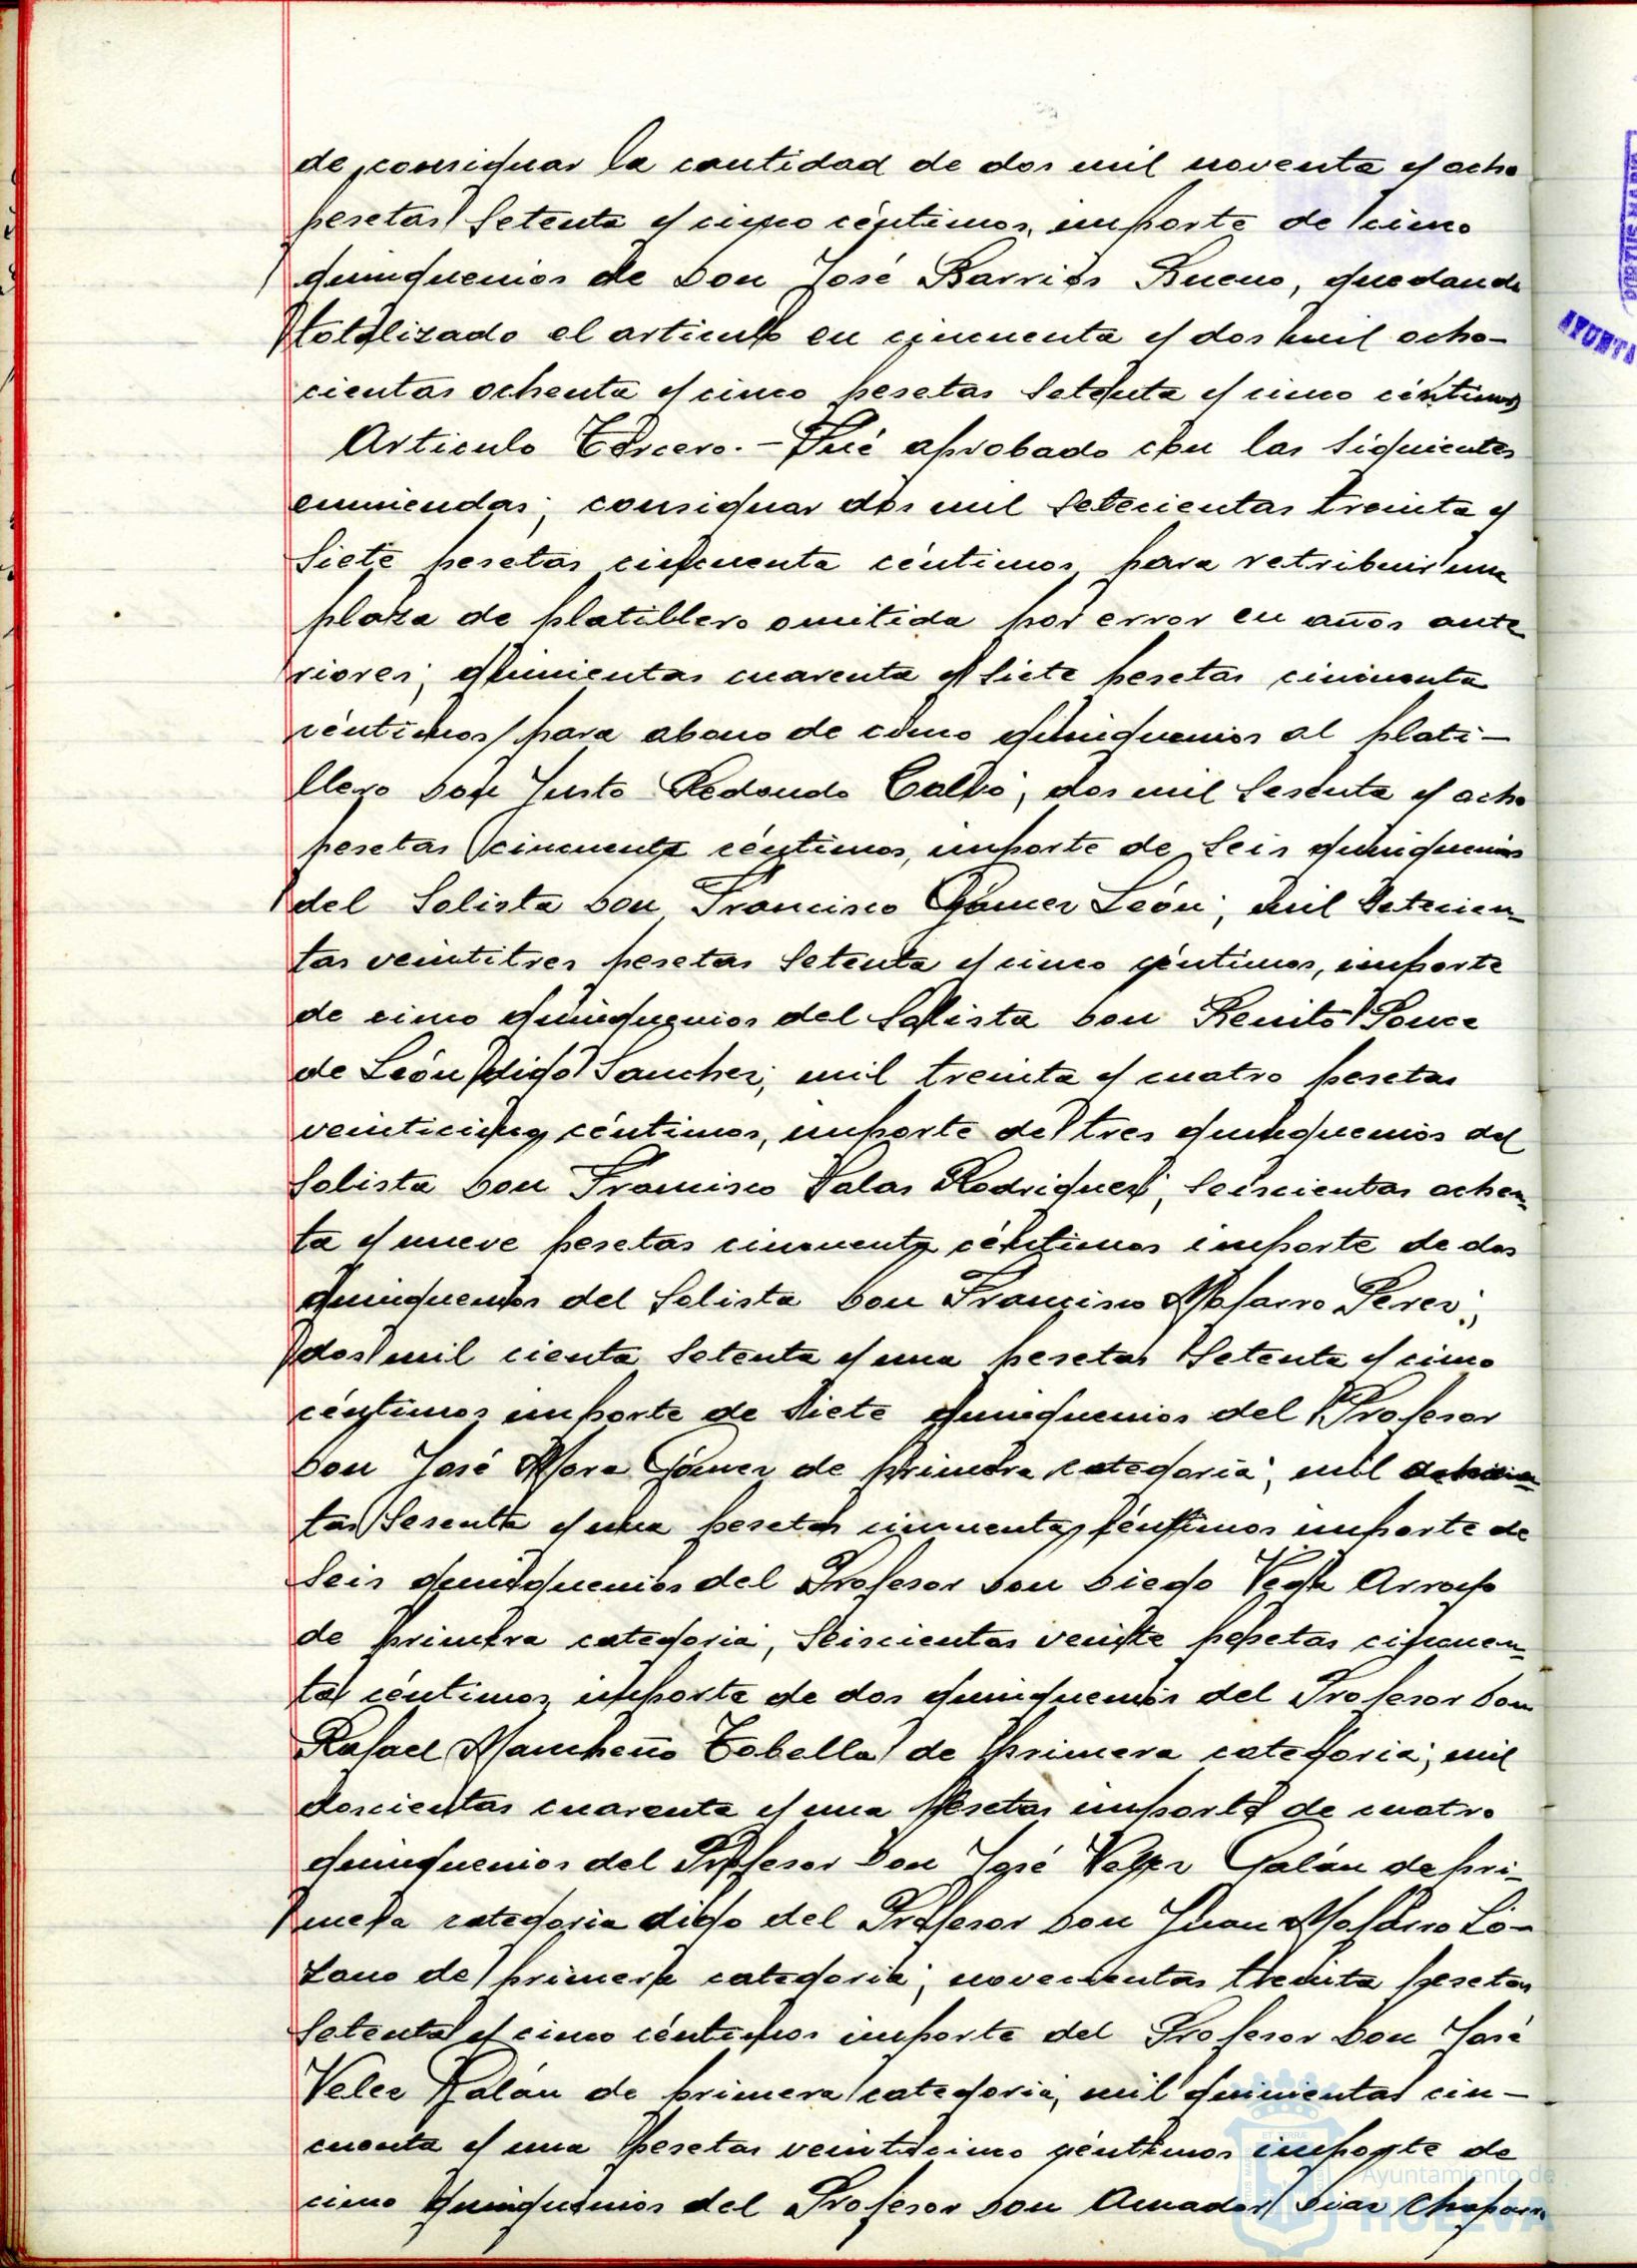 de consignar la cantidad de dos mil noventa y ocho
pesetas setenta y cinco céntimos, importe de cinco
quinquenios de Don José Barrios Bueno, quedando
totalizado el articulo en cincuenta y dos mil ocho-
cientas ochenta y cinco pesetas setenta y cinco céntimos
Articulo Tercero.- Fué aprobado con las siguientes
enmiendas; consignar dos mil setecientas treinta y
siete pesetas cincuenta céntimos para retribuir una
plaza de platillero omitida por error en años ante
riores; quinientas cuarenta y siete pesetas cincuenta
céntimos para abono de cinco quinquenios al plati-
llero Don Justo Redondo Calvo; dos mil sesenta y ocho
pesetas cincuenta céntimos, importe de seis quinquenios
del Solista Don Francisco Gómez León; mil setecien-
tas veintitres pesetas setenta y cinco céntimos, importe
de cinco quinquenios del Solista Don Benito Ponce
de León digo Sanchez; mil treinta y cuatro pesetas
veinticinco céntimos, importe de tres quinquenios del
Solista Don Francisco Salas Rodriguez; seiscientas ochen-
ta y nueve pesetas cincuenta céntimos importe de dos
quinquenios del Solista Don Francisco Mofarro Perez;
dos mil cienta setenta y una pesetas setenta y cinco
céntimos importe de siete quinquenios del Profesor
Don José Mora Gómez de primera categoria; mil
tas sesenta y una pesetas cincuenta céntimos importe de
seis quinquenios del Profesor Don Diego Vega Arroyo
de primera categoria, seiscientas veinte pesetas cincuen-
ta céntimos importe de dos quinquenios del Profesor Don
Rafael Mancheño Tobella de primera categoria; mil
doscientas cuarenta y una pesetas importe de cuatro
quinquenios del Profesor Don José Velez Galán de pri-
mera categoria digo del Profesor Don Juan Mofarro Lo-
zano de primera categoria; novecientas treinta pesetas
setenta y cinco céntimos importe del Profesor Don José
Velez Galán de primera categoria, mil quinientas cin-
cuenta y una pesetas veinticinco céntimos importe de
cinco quinquenios del Profesor Don Amador Diaz Chaparro
AYUNTA
Ayuntamiento de
HUELVA